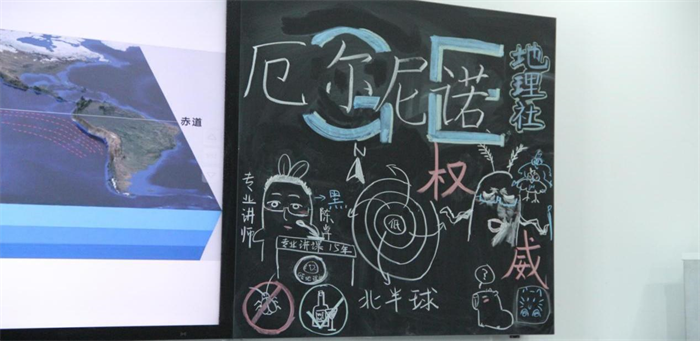 赤道
厄尔尼诺
GE
地理社
N
权威
专业讲师
黑
陈皮
专业讲课15年
低
北半球
?